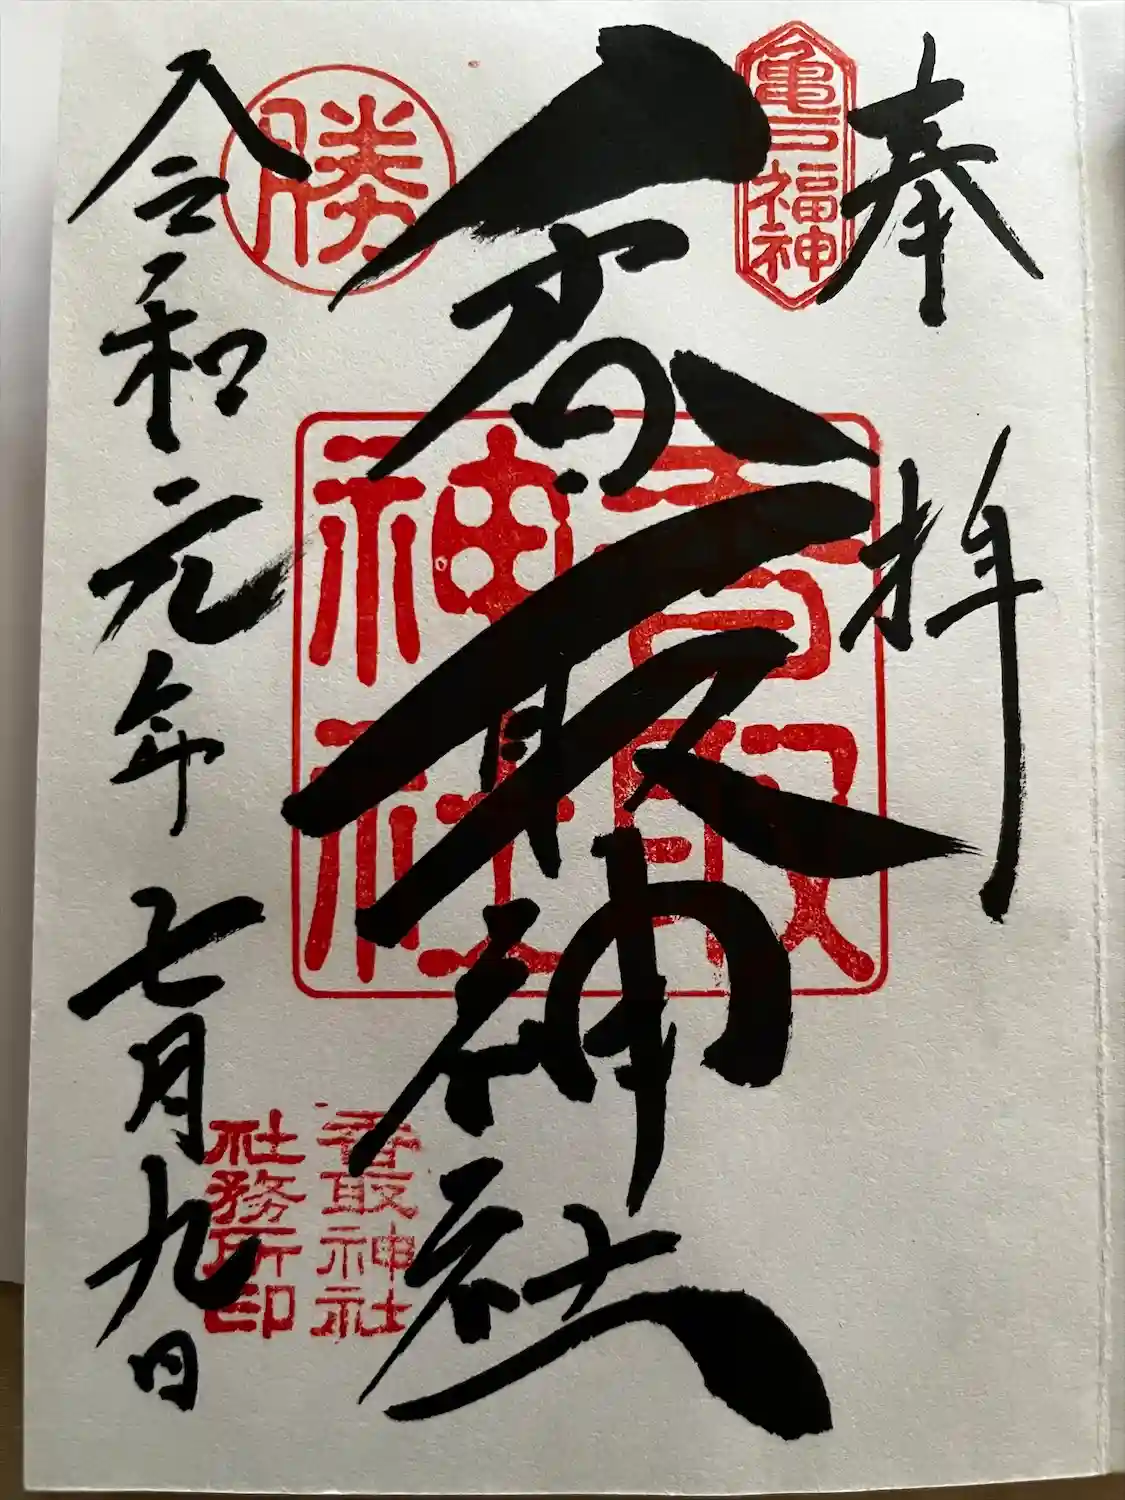 奉拝
亀戸福神
香取神社
香取
神社
勝
令和元年七月九日
香取神社
社務所印